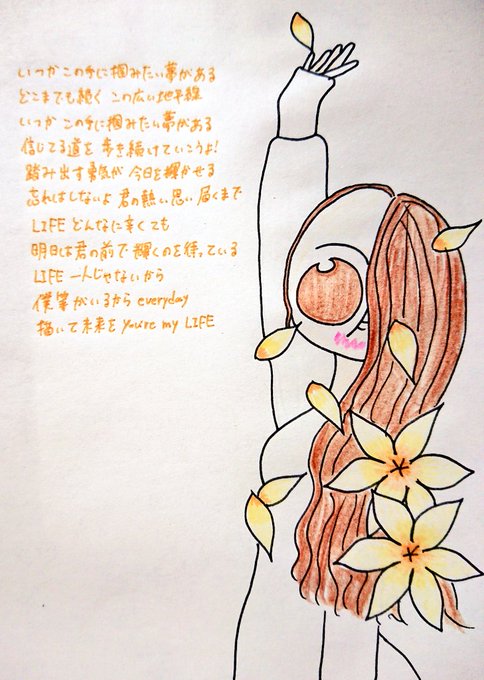 いつかこの手に掴みたい夢がある
どこまでも続く この広い地平線
いつかこの手に掴みたい夢がある
信じてる道を 歩き続けていこうよ!
踏み出す勇気が 今日を輝かせる
忘れはしないよ 君の熱い思い 届くまで
LIFE どんなに辛くても
明日は君の前で 輝くのを待っている
LIFE 一人じゃないから
僕等がいるから everyday
描いて未来を You're my LIFE